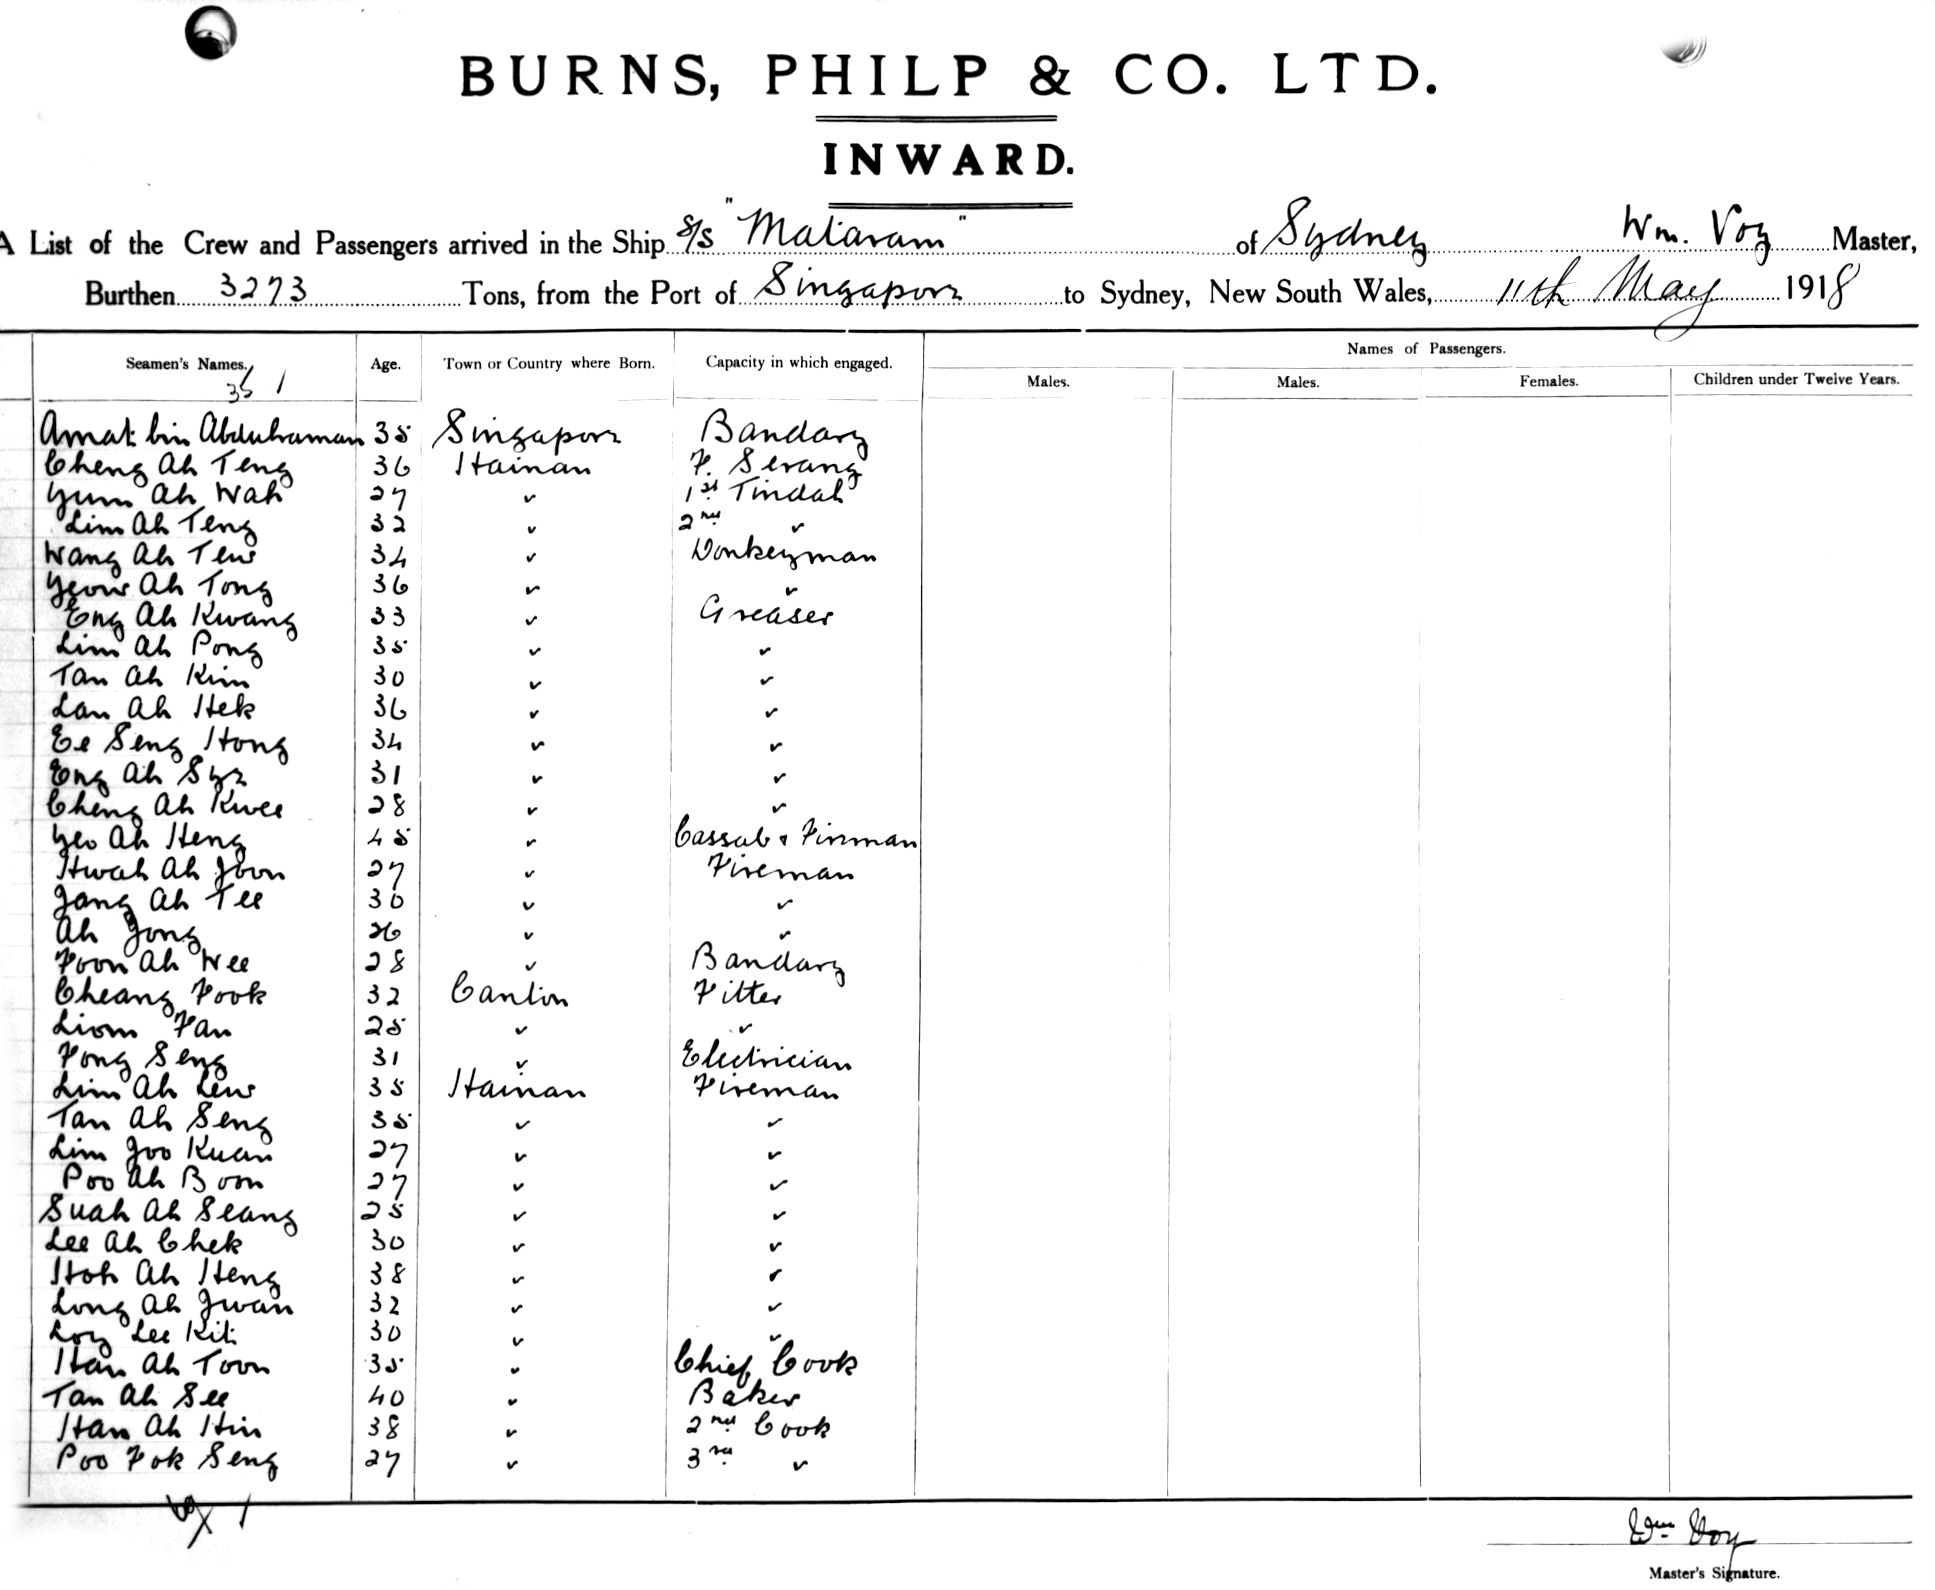 BURNS, PHILP & CO. LTD.
INWARD.
A List of the Crew and Passengers arrived in the Ship S/S "Mataram" of Sydney Wm. Voy Master,
Burthen 3273 Tons, from the Port of Singapore to Sydney, New South Wales, 11th May 1918
Names of Passengers.
Seamen's Names. Age. Town or Country where Born. Capacity in which engaged. Males. Males. Females. Children under Twelve Years.
35 1
Amat bin Abduhraman 35 Singapore Bandary
Cheng Ah Teng 36 Hainan F. Serang
Yum Ah Wah 27 " 1st Tindal
Lim Ah Teng 32 " 2nd "
Wang Ah Tew 34 " Donkeyman
Yeow Ah Tong 36 " "
Eng Ah Kwang 33 " Greaser
Lim Ah Pong 35 " "
Tan Ah Kim 30 " "
Lan Ah Hek 36 " "
Ee Seng Hong 34 " "
Eng Ah Sye 31 " "
Cheng Ah Kwee 28 " "
Yeo Ah Heng 45 " Cassab & Fireman
Hwah Ah Joon 27 " Fireman
Jang Ah Tee 30 " "
Ah Jong 26 " "
Foon Ah Wee 28 " Bandary
Cheang Fook 32 Canton Fitter
Liom Fan 25 " "
Fong Seng 31 " Electrician
Lim Ah Lew 35 Hainan Fireman
Tan Ah Seng 35 " "
Lim Joo Kuan 27 " "
Poo Ah Boon 27 " "
Suah Ah Seang 25 " "
Lee Ah Chek 30 " "
Hoh Ah Heng 38 " "
Long Ah Jwan 32 " "
Loy Lee Kit 30 " "
Han Ah Toon 35 " Chief Cook
Tan Ah See 40 " Baker
Han Ah Hin 38 " 2nd Cook
Poo Fok Seng 27 " 3rd "
Wm Voy
Master's Signature.